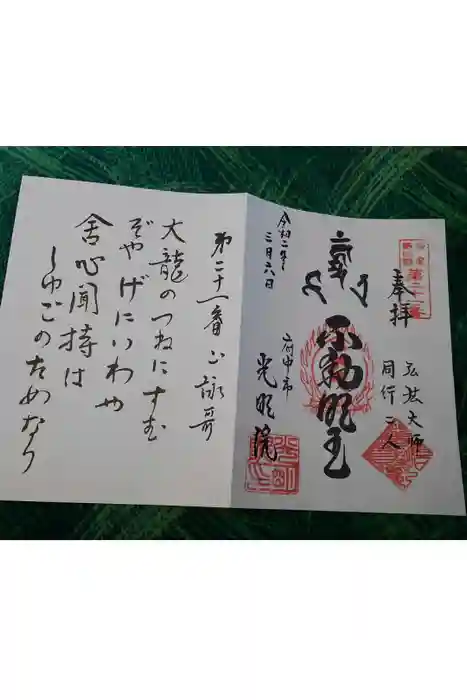 奉拝
弘法大師
同行二人
第二十一番
不動明王
令和二年
三月六日
府中市
光明院
第二十一番 御詠歌
大龍のつねにすむ
ぞやげにいわや
舎心聞持は
しゅごのためなり